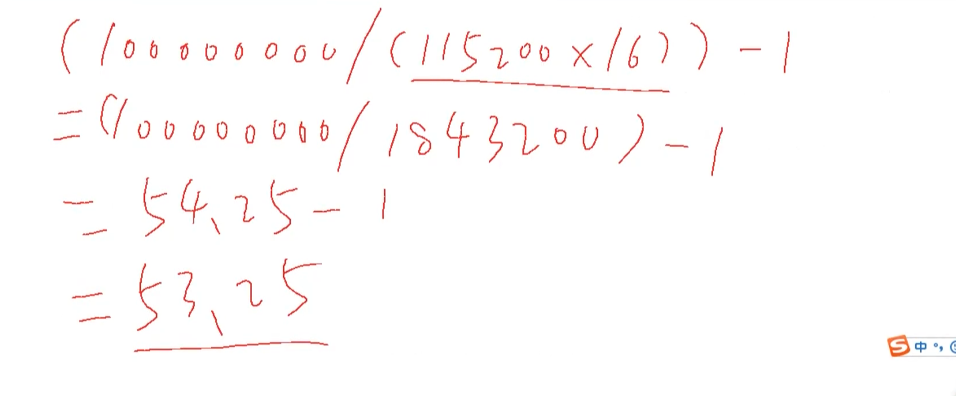 (100000000/(115200×16))-1
=(100000000/1843200)-1
=54.25-1
=53.25
中 °,